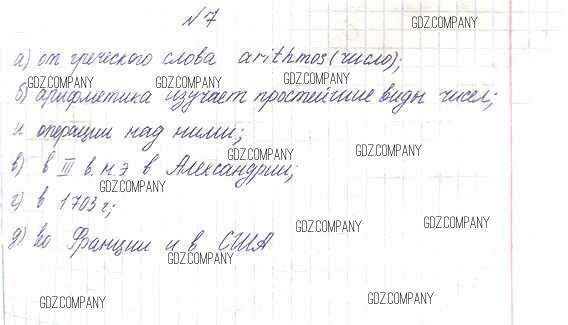 №7
GDZ.COMPANY
а) от греческого слова arithmos (число);
GDZ.COMPANY GDZ.COMPANY GDZ.COMPANY
б) арифметика изучает простейшие виды чисел;
и операции над ними;
GDZ.COMPANY GDZ.COMPANY
в) в III в. н.э в Александрии;
GDZ.COMPANY
г) в 1703 г;
GDZ.COMPANY GDZ.COMPANY
д) во Франции и в США
GDZ.COMPANY
GDZ.COMPANY GDZ.COMPANY